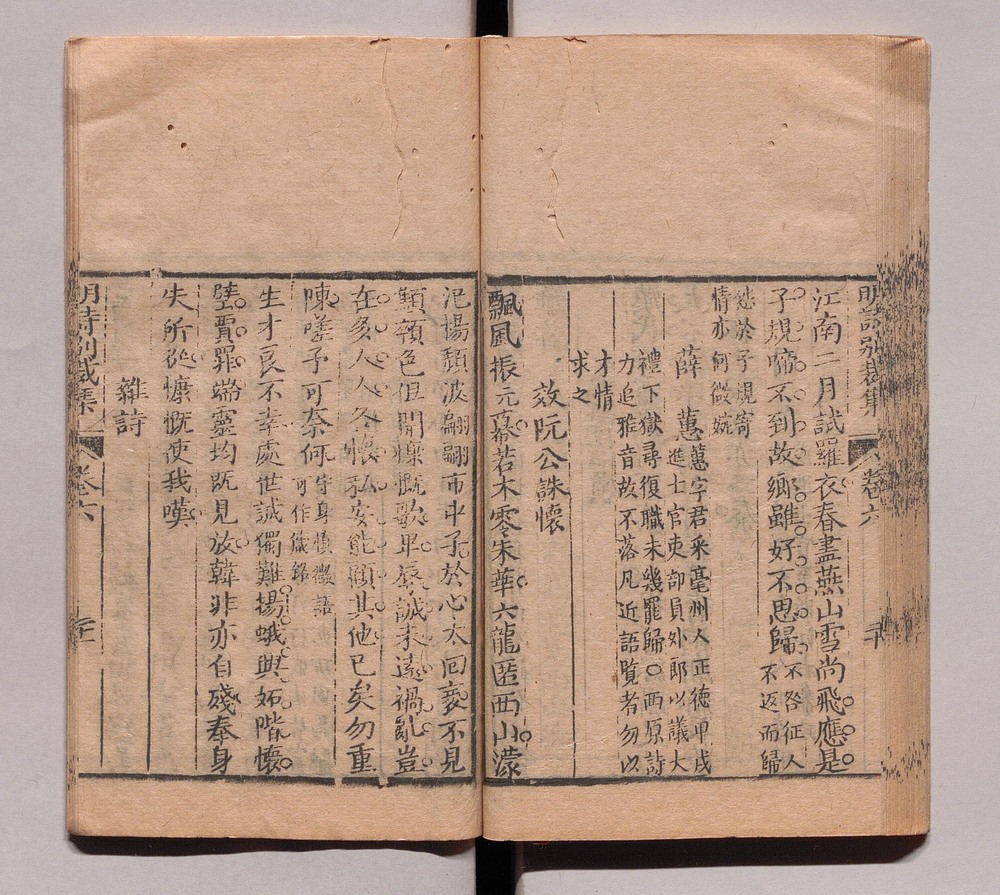 明詩別裁集 卷六 二十
江南二月試羅衣春盡燕山雪尚飛應是
子規啼不到故鄉雖好不思歸不咎征人
不返而歸
咎於子規寄
情亦何微婉
薛蕙蕙字君采亳州人正德甲戌
進士官吏部員外郎以議大
禮下獄尋復職未幾罷歸○西原詩
力追雅音故不落凡近語覽者勿以
才情
求之
效阮公詠懷
飄風振元幕若木零朱華六龍匿西山濛
汜揚頹波翩翩市中子於心太回衺不見
顦顇色但聞慷慨歌卑辱誠未遠禍亂豈
在多人人各懷私安能顧其他已矣勿重
陳嗟子可奈何守身慎微語
可作箴銘
生才良不幸處世誠獨難揚蛾興妬階懷
璧賈罪端靈均既見放韓非亦自殘奉身
失所從慷慨使我嘆
雜詩
明詩別裁集 卷六